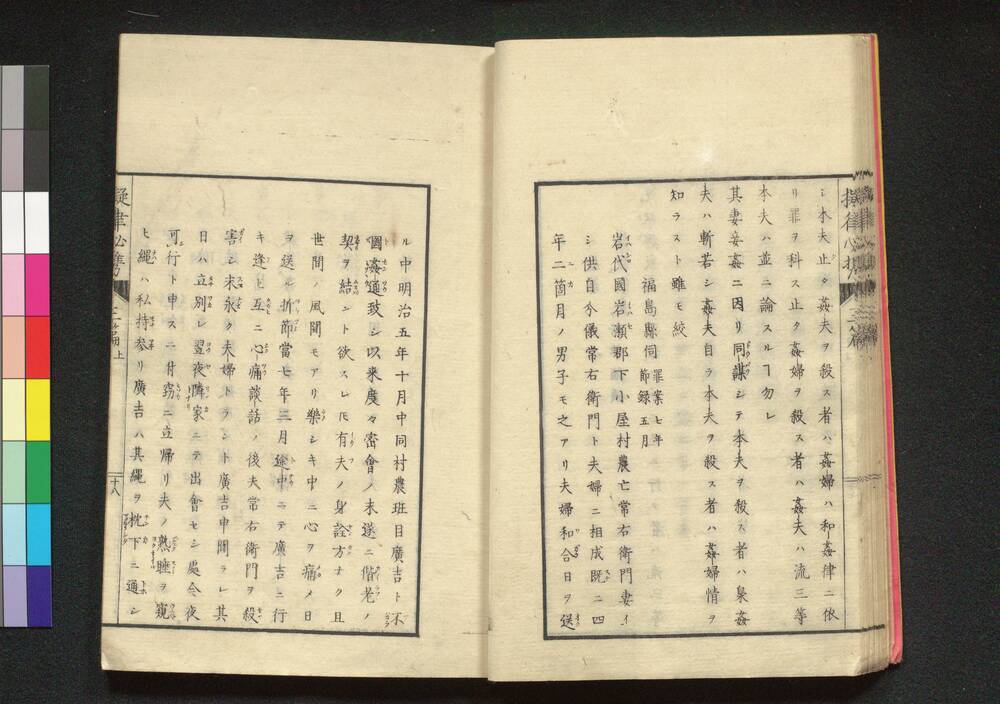 シ本夫止タ姦夫ヲ殺ス者ハ姦婦ハ和姦律ニ依
リ罪ヲ科ス止タ姦婦ヲ殺ス者ハ姦夫ハ流三等
本夫ハ並ニ論スルヿ勿レ
其妻妾姦ニ因リ同謀シテ本夫ヲ殺ス者ハ梟姦
夫ハ斬若シ姦夫自ラ本夫ヲ殺ス者ハ姦婦情ヲ
知ラスト雖モ絞
福島縣伺 罪案七年
節録五月
岩代國岩瀬郡下小屋村農亡常右衛門妻イ
シ供自分儀常右衛門ト夫婦ニ相成既ニ四
年二箇月ノ男子モ之アリ夫婦和合日ヲ送
ル中明治五年十月中同村農班目廣吉ト不
圖姦通致シ以来度々密會ノ末遂ニ偕老ノ
契ヲ結ント欲スレ𪜈有夫ノ身詮方ナク且
世間ノ風聞モアリ樂シキ中ニ心ヲ痛メ日
ヲ送ル折節當七年三月途中ニテ廣吉ニ行
キ逢ヒ互ニ心痛談話ノ後夫常右衛門ヲ殺
害シ末永ク夫婦トラント廣吉申聞ラレ其
日ハ立別レ翌夜隣家ニテ出會セシ處今夜
可行ト申スニ付窃ニ立帰リ夫ノ熟睡ヲ窺
ヒ縄ハ私持参リ廣吉ハ其縄ヲ枕下ニ通シ
擬律必携
十八